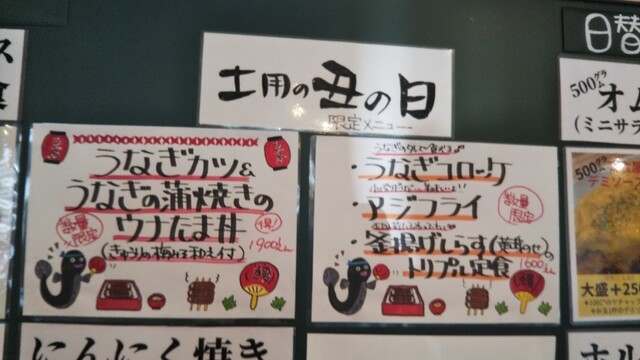 土用の丑の日
限定メニュー
うなぎカツ&
うなぎの蒲焼きの
ウナたま丼
(きゅうりの梅みそ和え付)
数量限定
得!
1900えん
うなぎのタレで食べる
・うなぎコロッケ
・アジフライ
・釜揚げしらす(薬味のせ)の
トリプル定食
数量限定
1600えん
日替
500グラム
オム
(ミニサラ
500グラム
デミソー
大盛+250
にんにく焼き